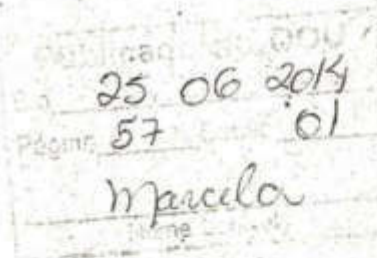 Publicado DOU
Em 25 06 2014
Página 57 01
Marcela
Nome